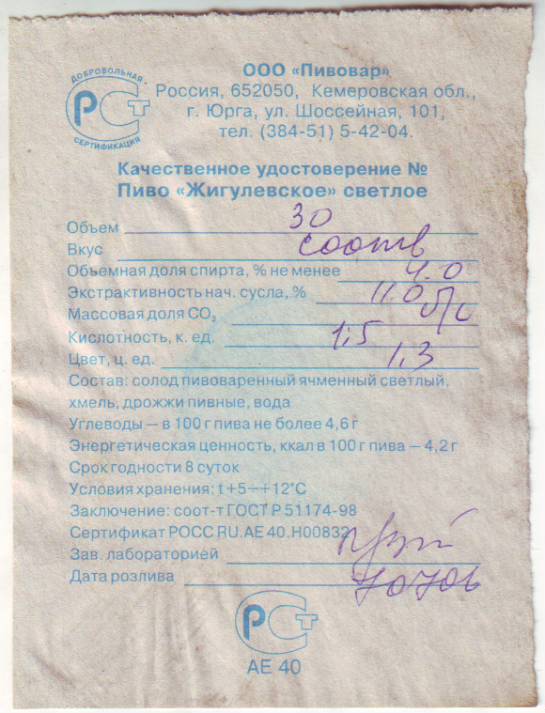 ДОБРОВОЛЬНАЯ
РСТ
СЕРТИФИКАЦИЯ
ООО «Пивовар»
Россия, 652050, Кемеровская обл.,
г. Юрга, ул. Шоссейная, 101,
тел. (384-51) 5-42-04.
Качественное удостоверение №
Пиво «Жигулевское» светлое
Объем 30
Вкус соотв
Объемная доля спирта, % не менее 4.0
Экстрактивность нач. сусла, % 11.0
Массовая доля СО₂
Кислотность, к. ед. 1,5
Цвет, ц. ед. 1,3
Состав: солод пивоваренный ячменный светлый,
хмель, дрожжи пивные, вода
Углеводы – в 100 г пива не более 4,6 г
Энергетическая ценность, ккал в 100 г пива – 4,2 г
Срок годности 8 суток
Условия хранения: t +5 ÷ +12°С
Заключение: соот-т ГОСТ Р 51174-98
Сертификат РОСС RU.АЕ 40.Н00832
Зав. лабораторией
Дата розлива
РСТ
АЕ 40